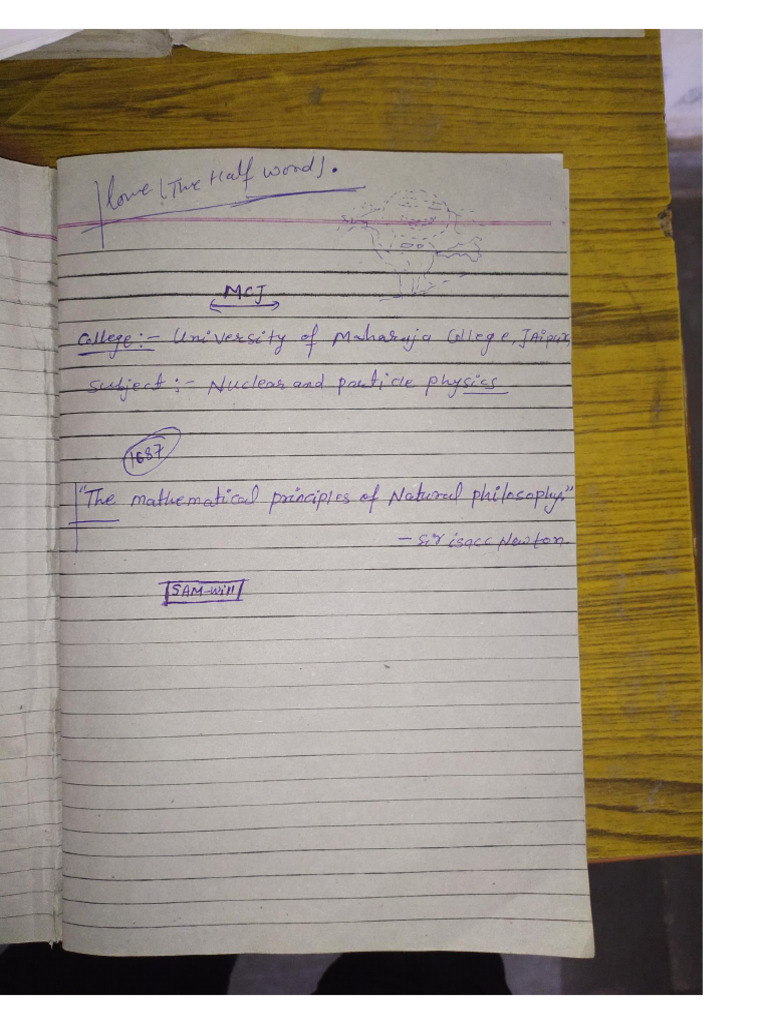 love! (The Half words.
MCJ
College:- University of Maharaja College, JAipur
Subject:- Nuclear and particle physics
1687
"The mathematical principles of Natural philosophy"
- Sir isacc Newton.
SAM-will